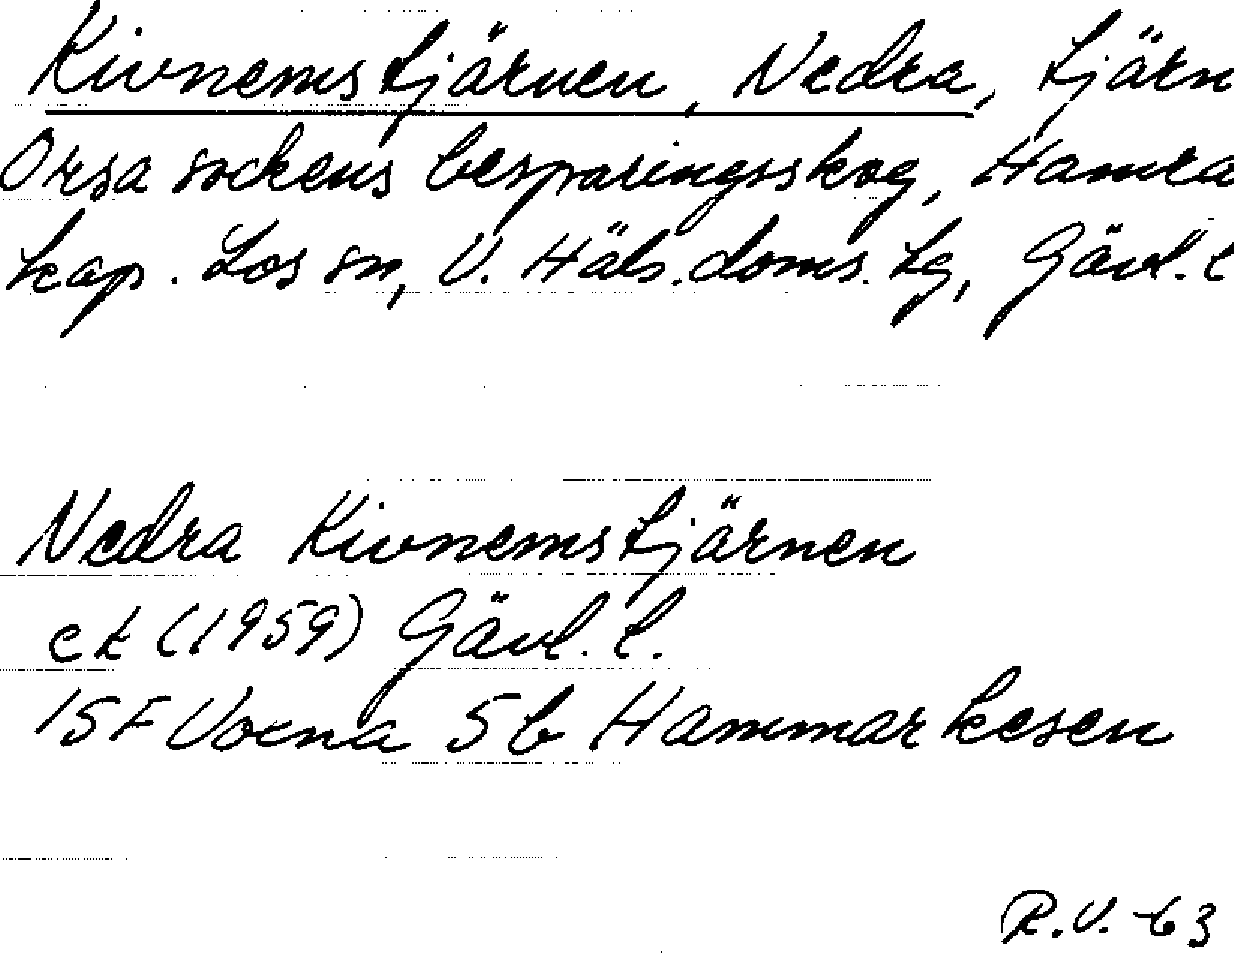 Kivnemstjärnen, Nedra, tjärn
Orsa sockens besparingsskog, Hamra
kap. Los sn, V. Häls. doms. tg, Gävl. l
Nedra Kivnemstjärnen
ek (1959) Gävl. l.
15F Voxna 5b Hammarkesen
R.V. -63